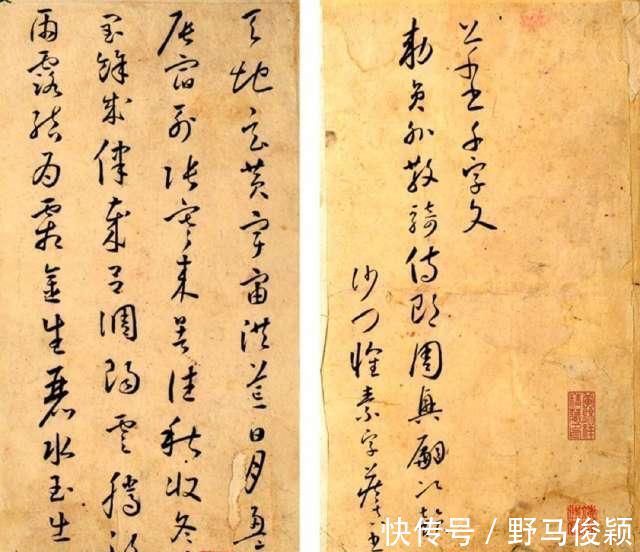 千字文
勅員外散騎侍郎周興嗣次韻
沙門懷素字藏真
天地玄黃宇宙洪荒日月盈
辰宿列張寒來暑往秋收冬
閏餘成律歲呂調陽雲騰致
雨露結為霜金生麗水玉生
快传号/野马俊颖